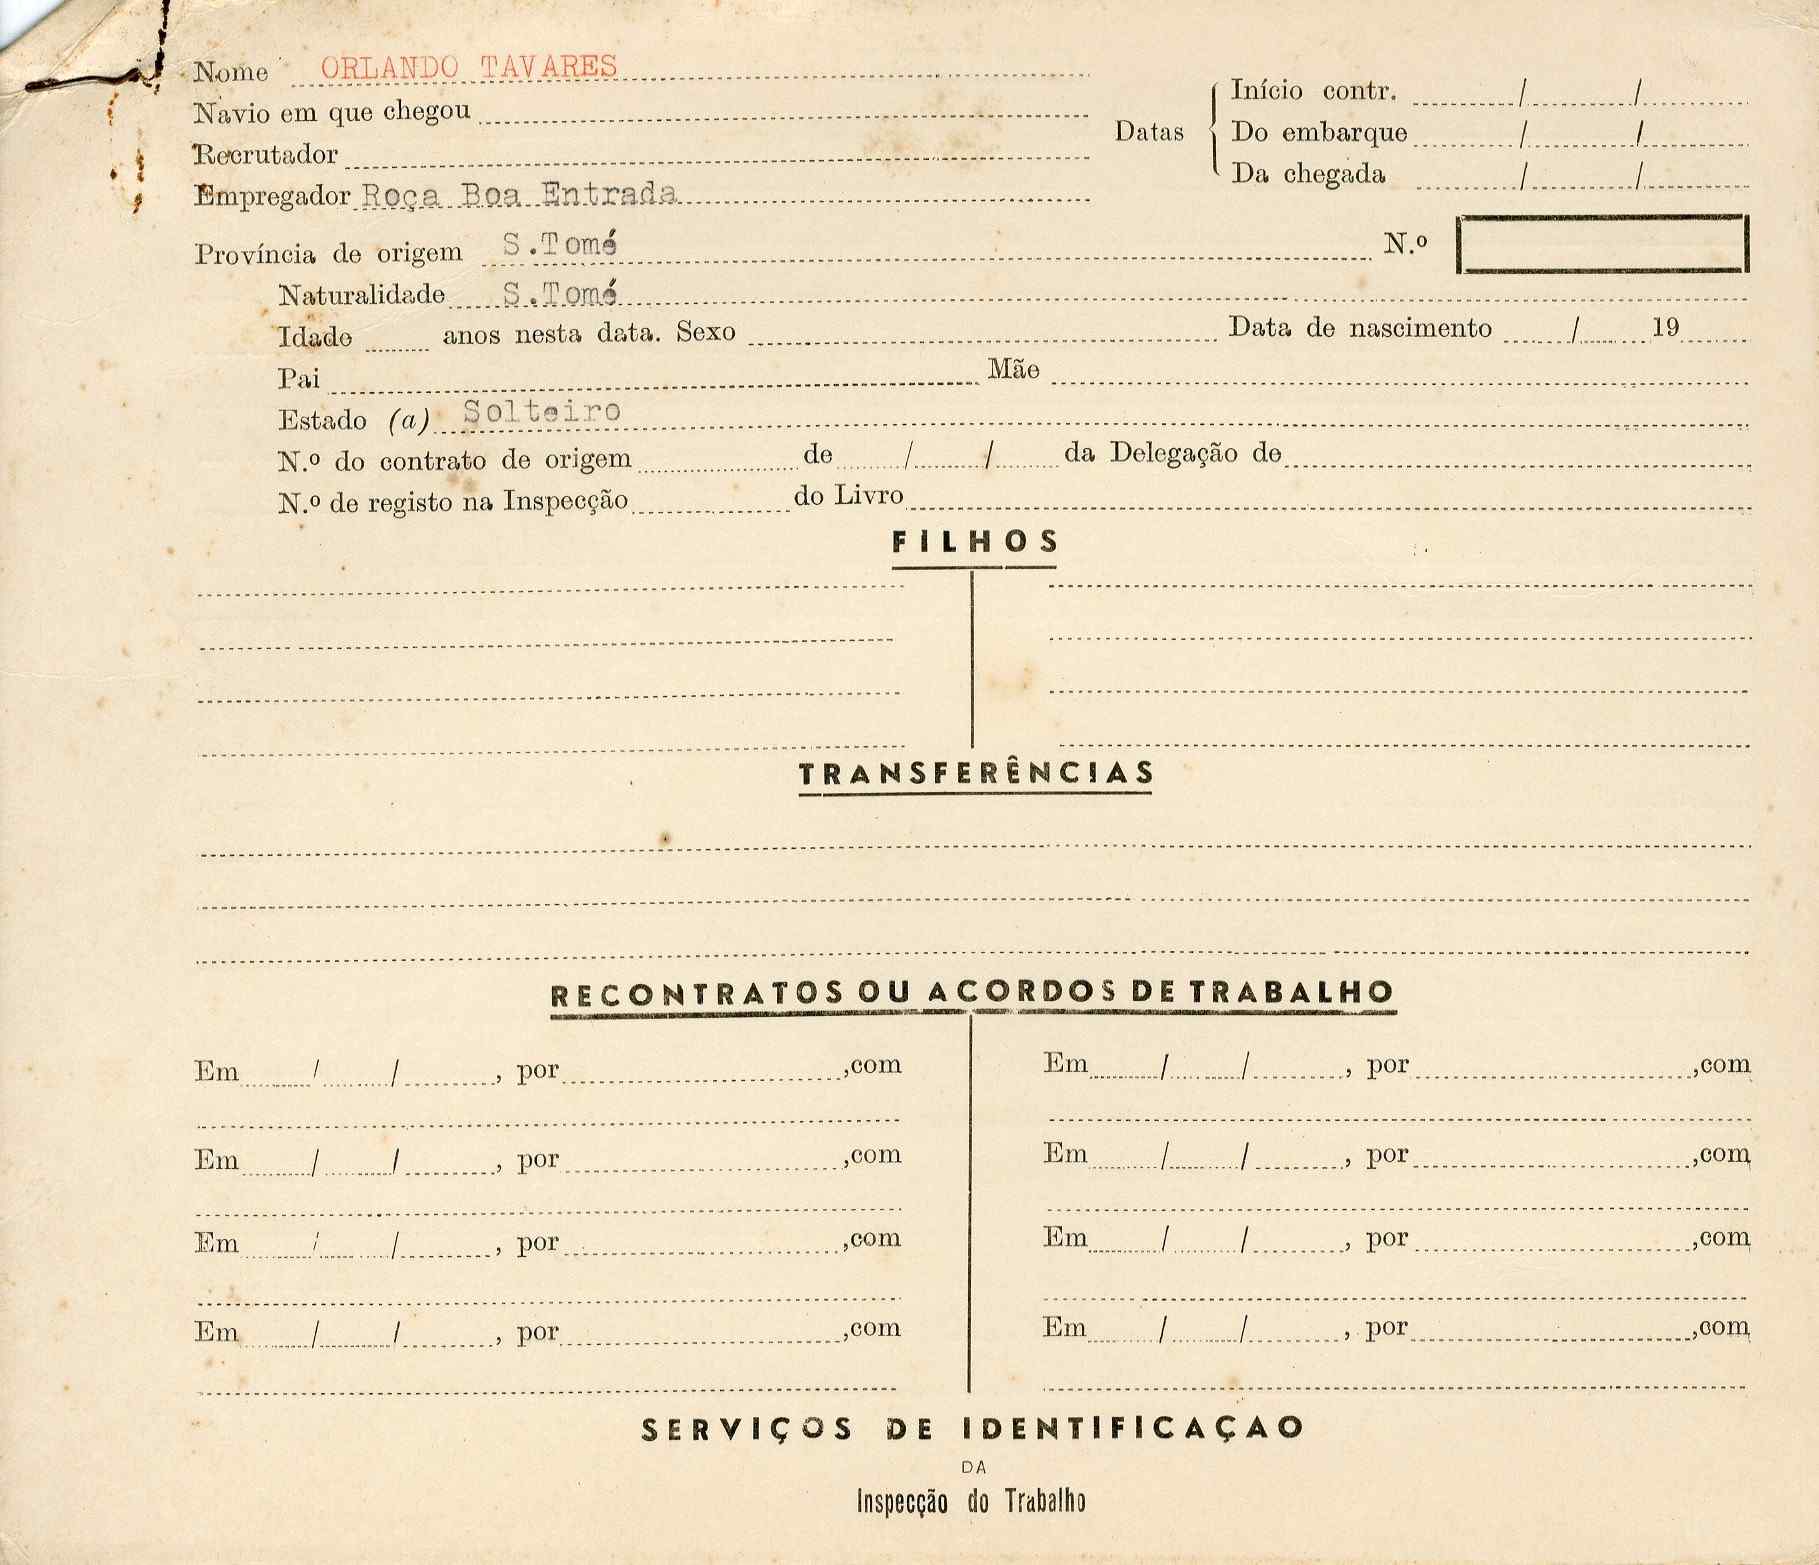 Nome ORLANDO TAVARES
Navio em que chegou
Recrutador
Empregador Roça Boa Entrada
Datas
Início contr. / /
Do embarque / /
Da chegada / /
Província de origem S.Tomé N.º
Naturalidade S.Tomé
Idade anos nesta data. Sexo Data de nascimento / 19
Pai Mãe
Estado (a) Solteiro
N.º do contrato de origem de / / da Delegação de
N.º de registo na Inspecção do Livro
FILHOS
TRANSFERÊNCIAS
RECONTRATOS OU ACORDOS DE TRABALHO
Em / / , por ,com
Em / / , por ,com
Em / / , por ,com
Em / / , por ,com
Em / / , por ,com
Em / / , por ,com
Em / / , por ,com
Em / / , por ,com
SERVIÇOS DE IDENTIFICAÇAO
DA
Inspecção do Trabalho